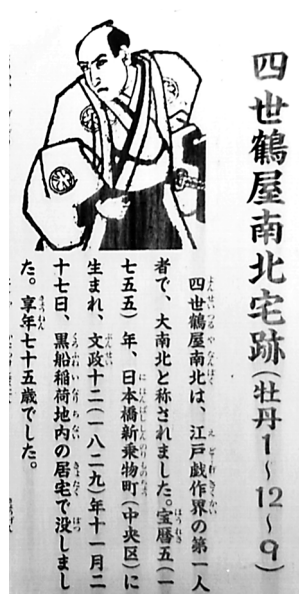 四世鶴屋南北宅跡(牡丹1~12~9)
四世鶴屋南北は、江戸戯作界の第一人
者で、大南北と称されました。宝暦五(一
七五五)年、日本橋新乗物町(中央区)に
生まれ、文政十二(一八二九)年十一月二
十七日、黒船稲荷地内の居宅で没しまし
た。享年七十五歳でした。